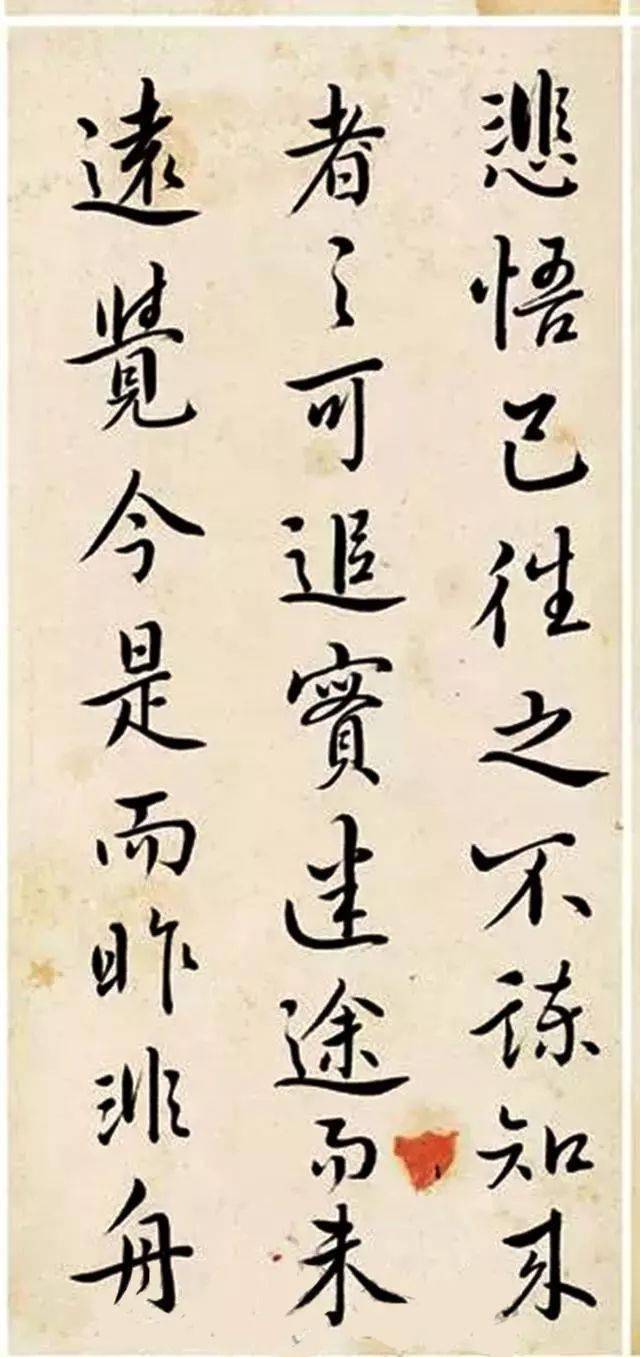 悲悟已往之不諫知來
者之可追實迷途而未
遠覺今是而昨非舟